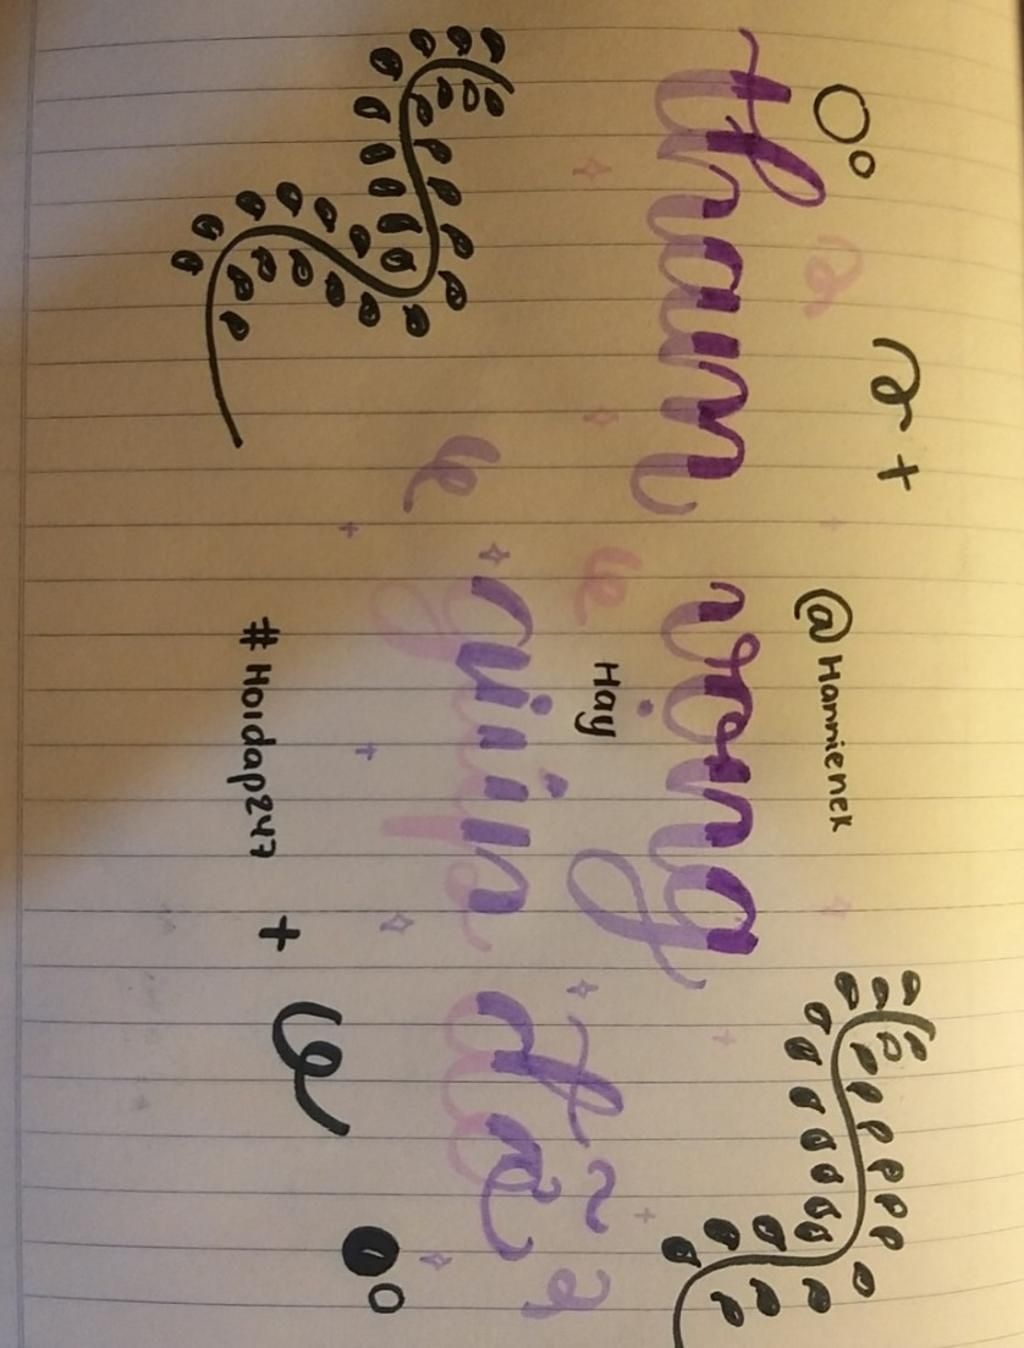 @Hannienek
tham vọng
Hay
giúp đỡ
#Hoidap247